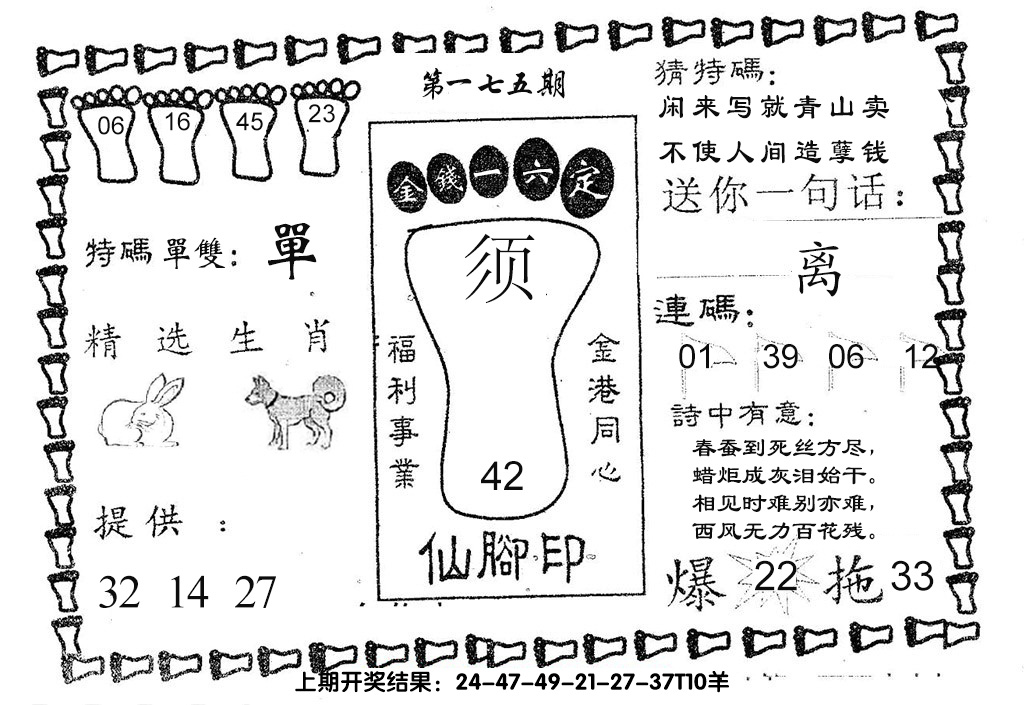 第一七五期
06 16 45 23
特碼單雙：單
精选生肖
提供：
32 14 27
金錢一六定
须
福利事業
金港同心
42
仙腳印
猜特碼：
闲来写就青山卖
不使人间造孽钱
送你一句话：
离
連碼：
01 39 06 12
詩中有意：
春蚕到死丝方尽，
蜡炬成灰泪始干。
相见时难别亦难，
西风无力百花残。
爆 22 拖 33
上期开奖结果：24-47-49-21-27-37T10羊